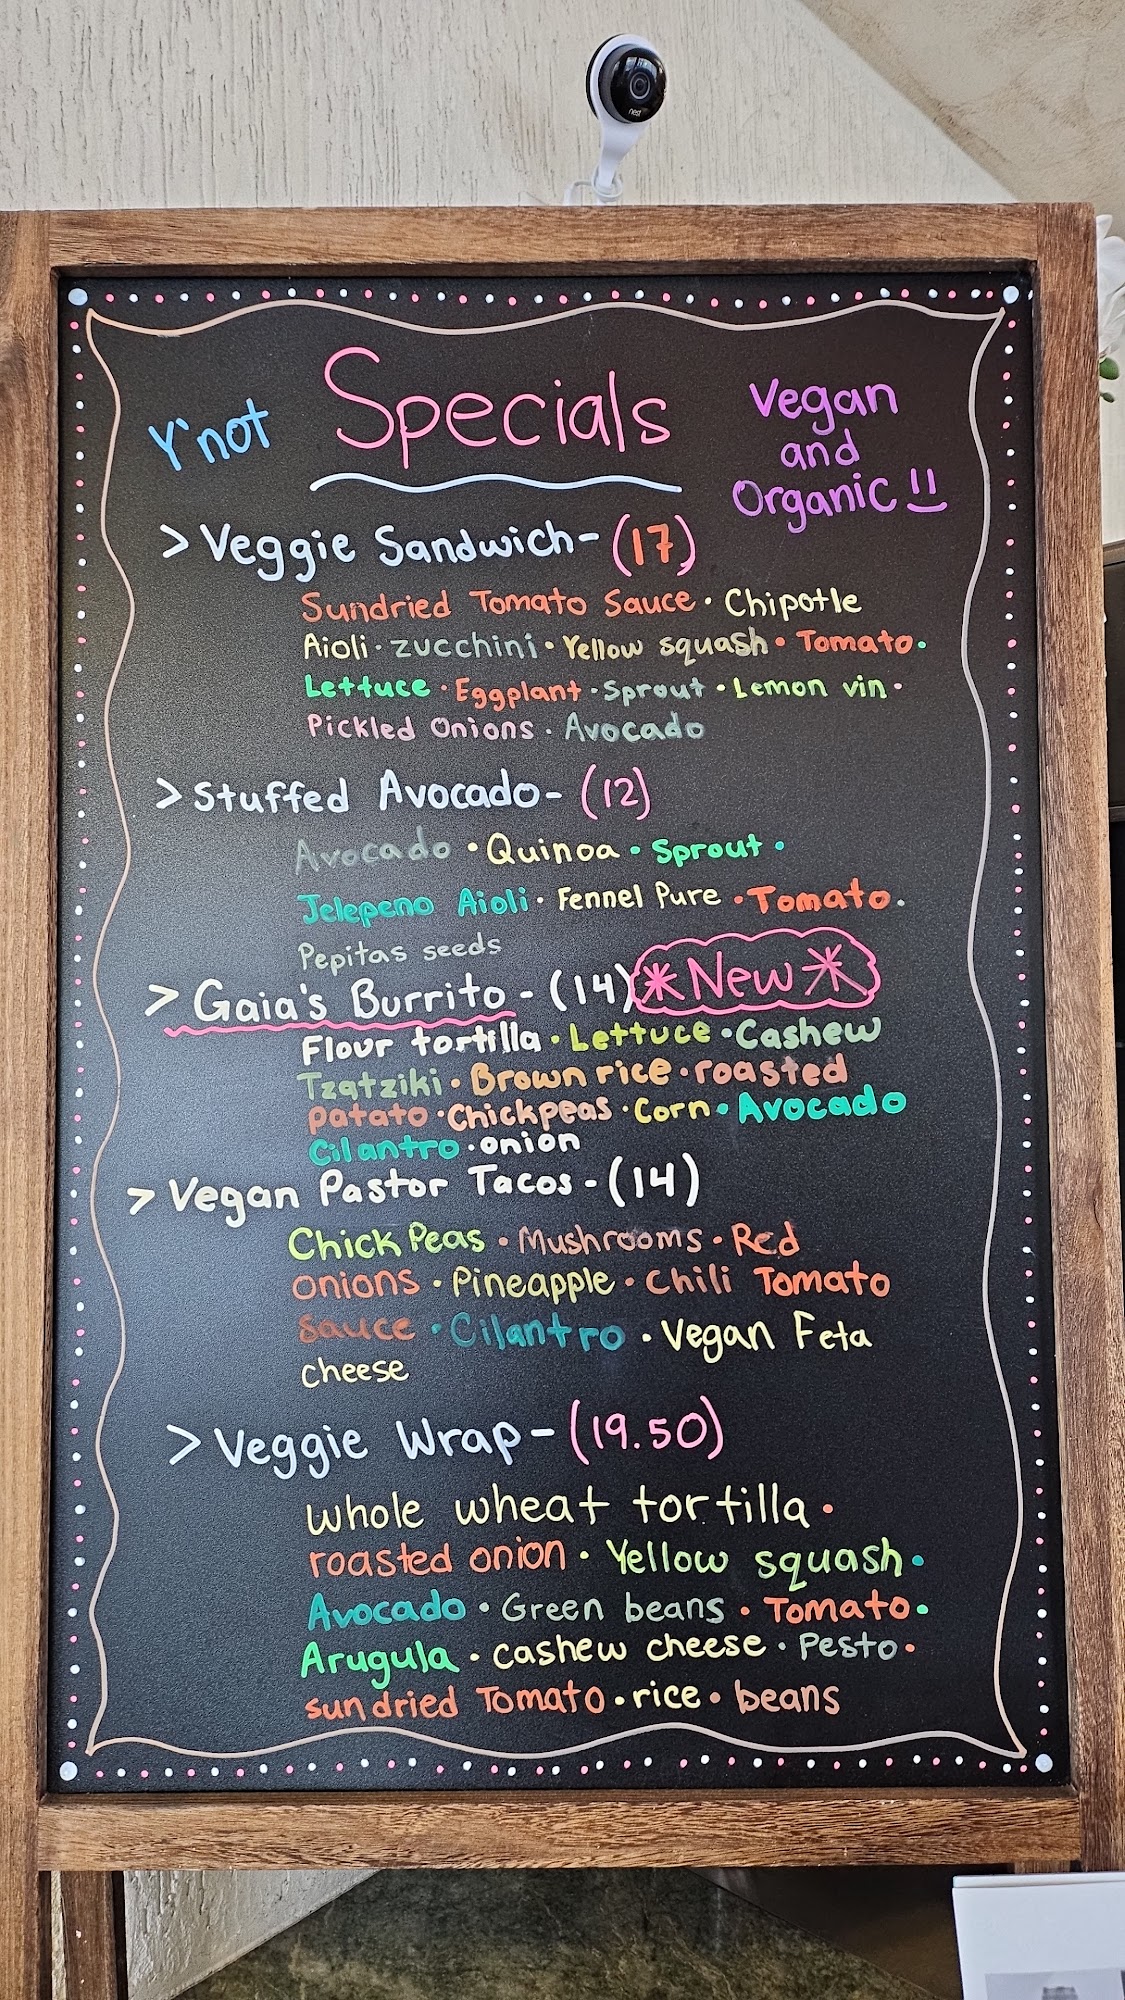 nest
Y'not Specials Vegan
and
Organic !!
> Veggie Sandwich - (17)
Sundried Tomato Sauce · Chipotle
Aioli · zucchini · Yellow squash · Tomato ·
Lettuce · Eggplant · Sprout · Lemon vin ·
Pickled Onions · Avocado
> Stuffed Avocado - (12)
Avocado · Quinoa · Sprout ·
Jelepeno Aioli · Fennel Pure · Tomato ·
Pepitas seeds
> Gaia's Burrito - (14) *New*
Flour tortilla · Lettuce · Cashew
Tzatziki · Brown rice · roasted
patato · Chickpeas · Corn · Avocado
Cilantro · onion
> Vegan Pastor Tacos - (14)
Chick Peas · Mushrooms · Red
onions · Pineapple · Chili Tomato
Sauce · Cilantro · Vegan Feta
cheese
> Veggie Wrap - (19.50)
whole wheat tortilla ·
roasted onion · Yellow squash ·
Avocado · Green beans · Tomato ·
Arugula · cashew cheese · Pesto ·
sun dried Tomato · rice · beans